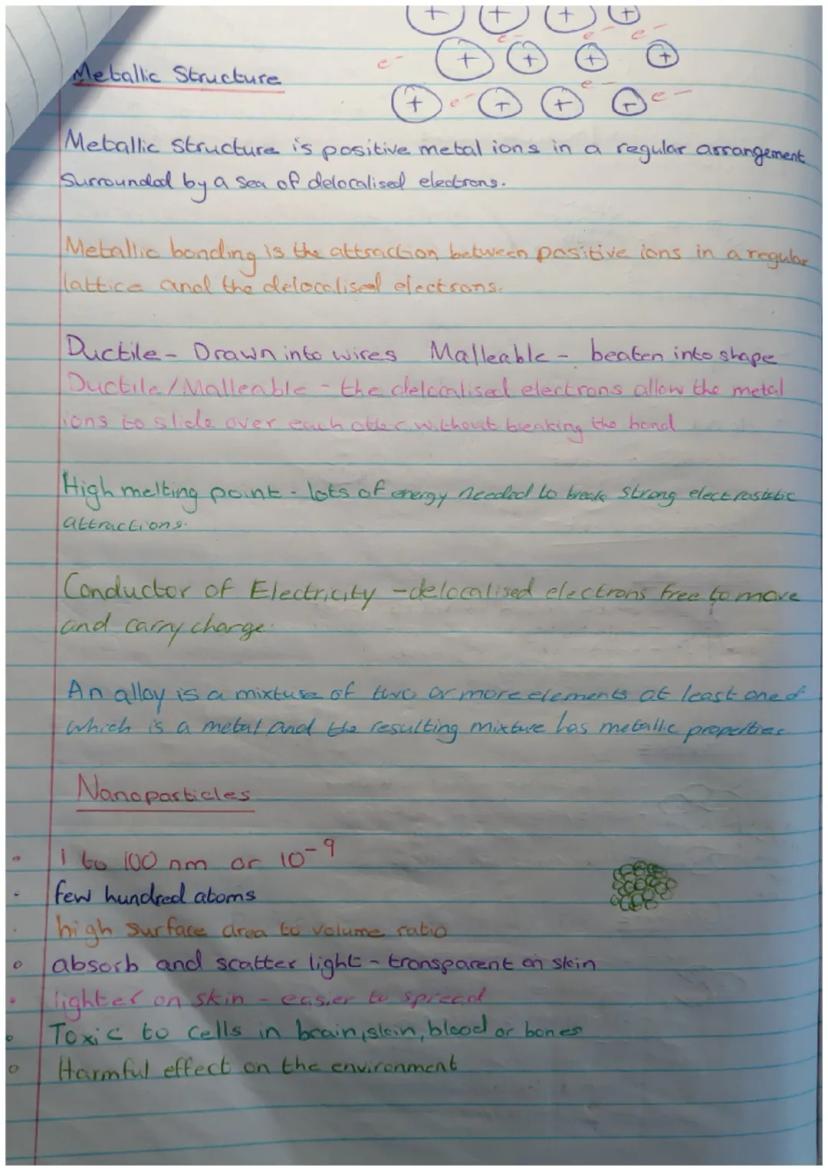 + + + +
e- e- e-
e- + + + +
e-
+ e- + + + e-
Metallic Structure
Metallic structure is positive metal ions in a regular arrangement
surrounded by a sea of delocalised electrons.
Metallic bonding is the attraction between positive ions in a regular
lattice and the delocalised electrons.
Ductile - Drawn into wires Malleable - beaten into shape
Ductile/Malleable - the delocalised electrons allow the metal
ions to slide over each other without breaking the bond
High melting point - lots of energy needed to break strong electrostatic
attractions.
Conductor of Electricity - delocalised electrons free to move
and carry charge.
An alloy is a mixture of two or more elements at least one of
which is a metal and the resulting mixture has metallic properties
Nanoparticles
1 to 100 nm or 10⁻⁹
few hundred atoms
high surface area to volume ratio
absorb and scatter light - transparent on skin
lighter on skin - easier to spread
Toxic to cells in brain, skin, blood or bones
Harmful effect on the environment